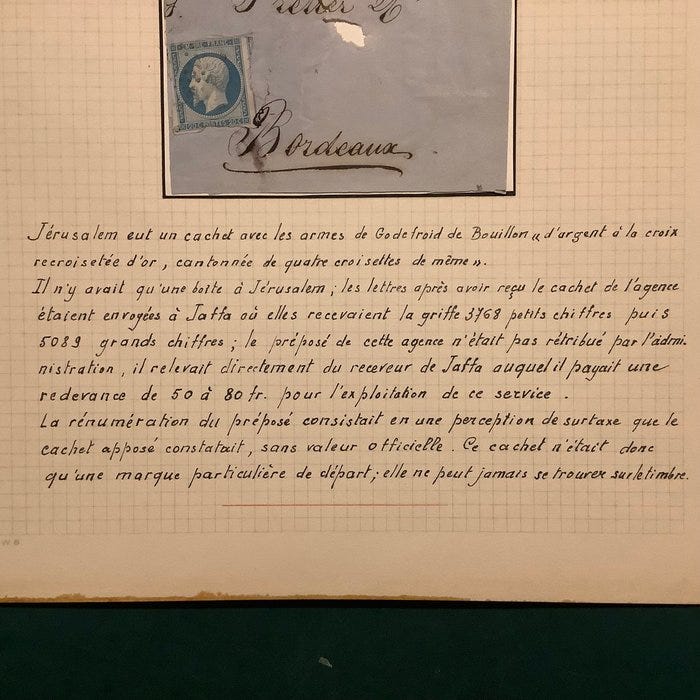 Bordeaux
EMPIRE FRANC.
20 C. POSTES 20 C.
Jérusalem eut un cachet avec les armes de Godefroid de Bouillon « d'argent à la croix
recroisetée d'or, cantonnée de quatre croisettes de même ».
Il n'y avait qu'une boîte à Jérusalem ; les lettres après avoir reçu le cachet de l'agence
étaient envoyées à Jaffa où elles recevaient la griffe 3768 petits chiffres puis
5089 grands chiffres ; le préposé de cette agence n'était pas rétribué par l'admi-
nistration, il relevait directement du receveur de Jaffa auquel il payait une
redevance de 50 à 80 fr. pour l'exploitation de ce service .
La rénumération du préposé consistait en une perception de surtaxe que le
cachet apposé constatait, sans valeur officielle. Ce cachet n'était donc
qu'une marque particulière de départ ; elle ne peut jamais se trouver sur le timbre.
W. B.